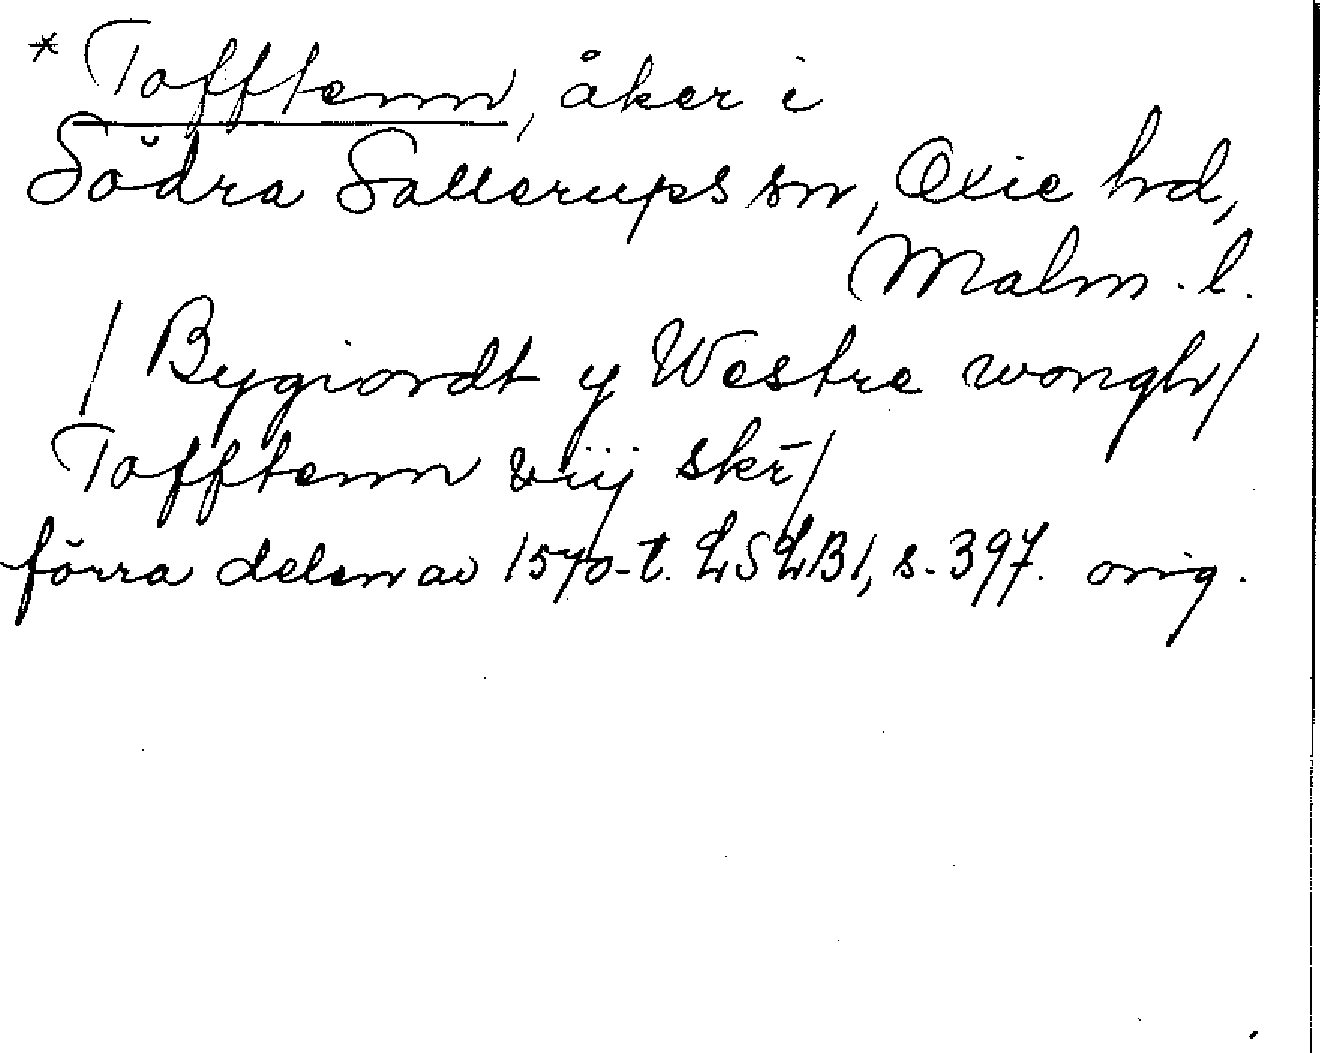 * Tofftenn, åker i
Södra Sallerups sn, Oxie hd,
Malm. l.
/ Bygiordt y Westre wongh /
Tofftenn viij skr̄ /
förra delen av 1570-t. LSLB1, s. 397. orig.